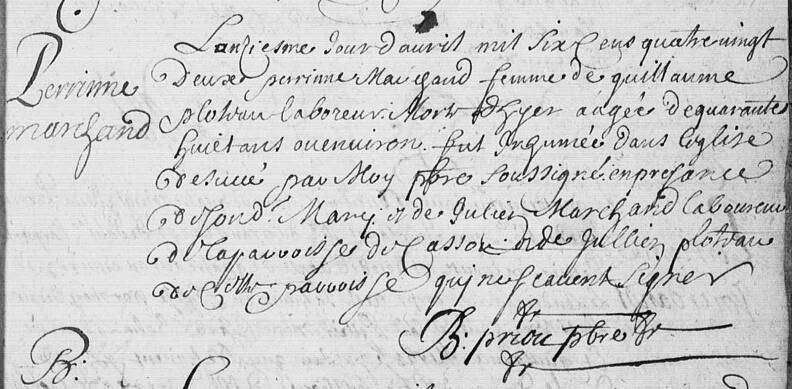 Perrinne
marchand
Lonziesme Jour davril mil six Cens quatre vingt
Deux perrinne Marchand femme de guillaume
ploteau laboreur Morte dhyer aagée dequarante
huict ans ou environ fut Inhumée dans leglise
de sucé par Moy pbre soussigné en presance
de sond. Mary et de Julien Marchand laboureur
de la parroisse de Casson et de Jullien ploteau
de Cette parroisse qui ne scavent signer
B: priou pbre
B: